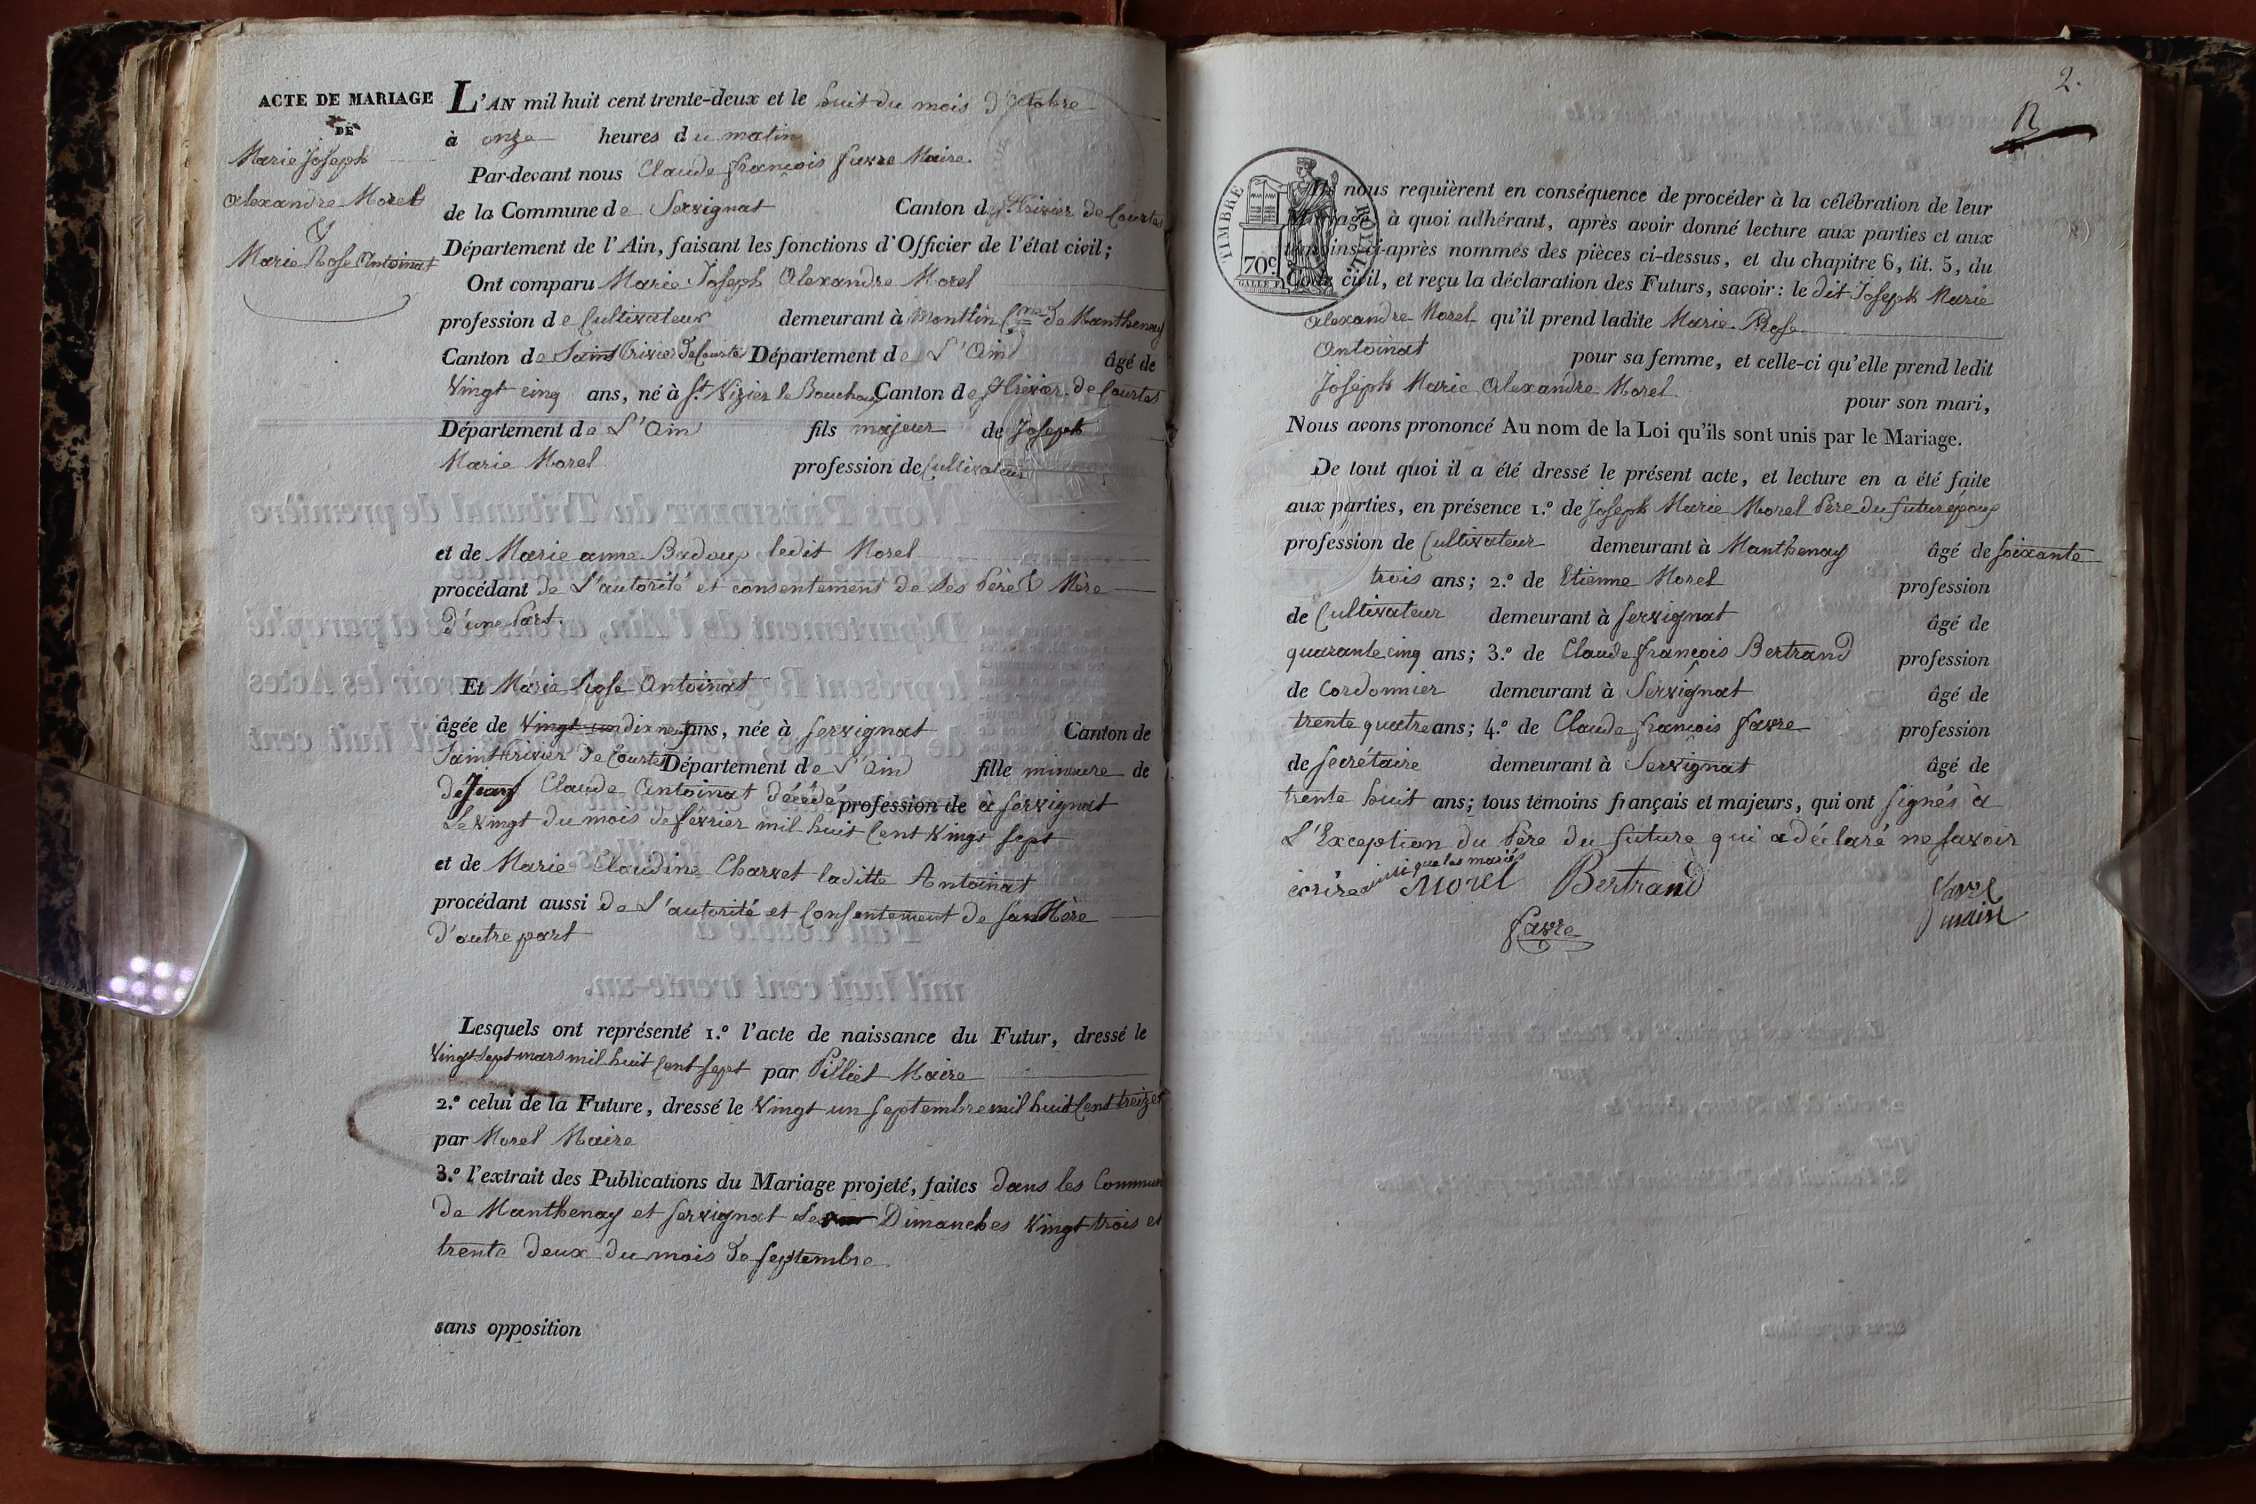 ACTE DE MARIAGE
DE
Marie Joseph
Alexandre Morel
&
Marie Rose Antoinat
L'AN mil huit cent trente-deux et le huit du mois d'Octobre
à onze heures du matin
Par-devant nous Claude françois favre Maire
de la Commune de Servignat Canton de St. trivier de Courtes
Département de l'Ain, faisant les fonctions d'Officier de l'état civil;
Ont comparu Marie Joseph Alexandre Morel
profession de Cultivateur demeurant à Montlin Cne de Manthenay
Canton de Saint trivier de Courtes Département de L'Ain âgé de
Vingt cinq ans, né à St. Nizier le Bouchoux Canton de St. trivier de Courtes
Département de L'Ain fils majeur de Joseph
Marie Morel profession de Cultivateur
et de Marie anne Badoux ledit Morel
procédant de L'autorité et consentement de ses Père & Mère
d'une Part.
Et Marie Rose Antoinat
âgée de Vingt un dix neuf ans, née à Servignat Canton de
Saint trivier de Courtes Département de L'Ain fille mineure de
de Jean Claude Antoinat décédé profession de à Servignat
Le vingt du mois de février mil huit Cent Vingt sept
et de Marie Claudine Charvet laditte Antoinat
procédant aussi de L'autorité et Consentement de sa Mère
d'autre part
Lesquels ont représenté 1.º l'acte de naissance du Futur, dressé le
Vingt Sept mars mil huit Cent Sept par Pilliet Maire
2.º celui de la Future, dressé le Vingt un Septembre mil huit Cent treize
par Morel Maire
3.º l'extrait des Publications du Mariage projeté, faites dans les Commun
de Manthenay et Servignat Les Dimanches Vingt trois et
trente deux du mois de Septembre
sans opposition
2.
TIMBRE ROYAL
70c.
Ils nous requièrent en conséquence de procéder à la célébration de leur
Mariage à quoi adhérant, après avoir donné lecture aux parties et aux
témoins ci-après nommés des pièces ci-dessus, et du chapitre 6, tit. 5, du
Code civil, et reçu la déclaration des Futurs, savoir: le dit Joseph Marie
Alexandre Morel qu'il prend ladite Marie Rose
Antoinat pour sa femme, et celle-ci qu'elle prend ledit
Joseph Marie Alexandre Morel pour son mari,
Nous avons prononcé Au nom de la Loi qu'ils sont unis par le Mariage.
De tout quoi il a été dressé le présent acte, et lecture en a été faite
aux parties, en présence 1.º de Joseph Marie Morel Père du futur époux
profession de Cultivateur demeurant à Manthenay âgé de soixante
trois ans; 2.º de Etienne Morel profession
de Cultivateur demeurant à Servignat âgé de
quarante cinq ans; 3.º de Claude françois Bertrand profession
de Cordonnier demeurant à Servignat âgé de
trente quatre ans; 4.º de Claude françois favre profession
de Secrétaire demeurant à Servignat âgé de
trente huit ans; tous témoins français et majeurs, qui ont signés à
L'Exception du Père du future qui a déclaré ne savoir
écrire ainsi que les mariés
Morel Bertrand favre
maire
favre